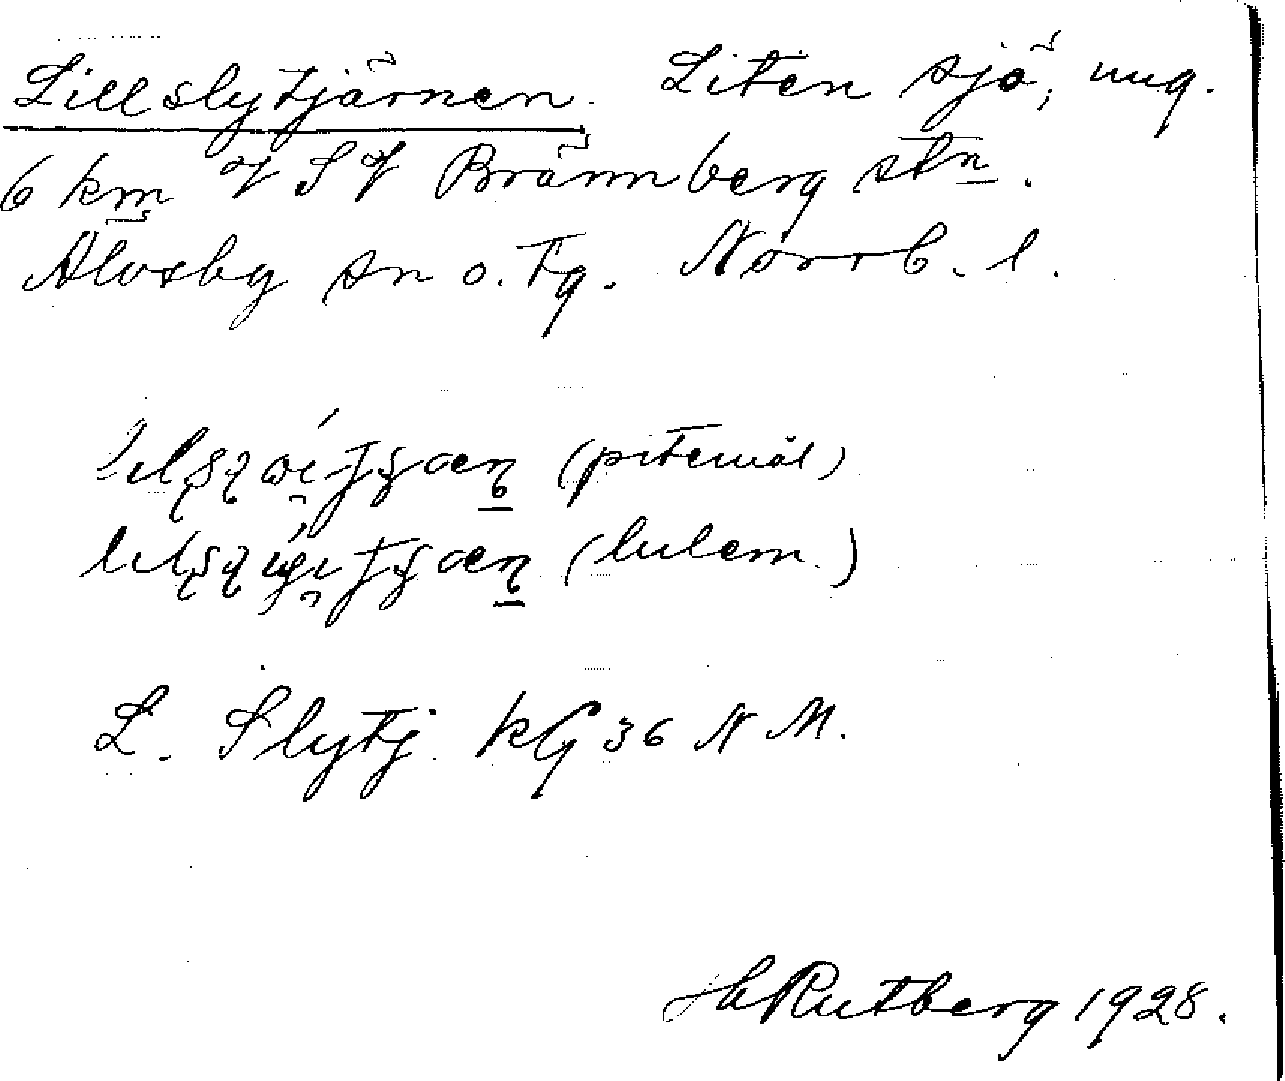 Lillslytjärnen. Liten sjö, ung.
6 km S Brännberg stn.
Älvsby sn o. tg. Norrb. l.
(pitemål)
(lulem.)
L. Slytj. KG 36 N M.
Rutberg 1928.